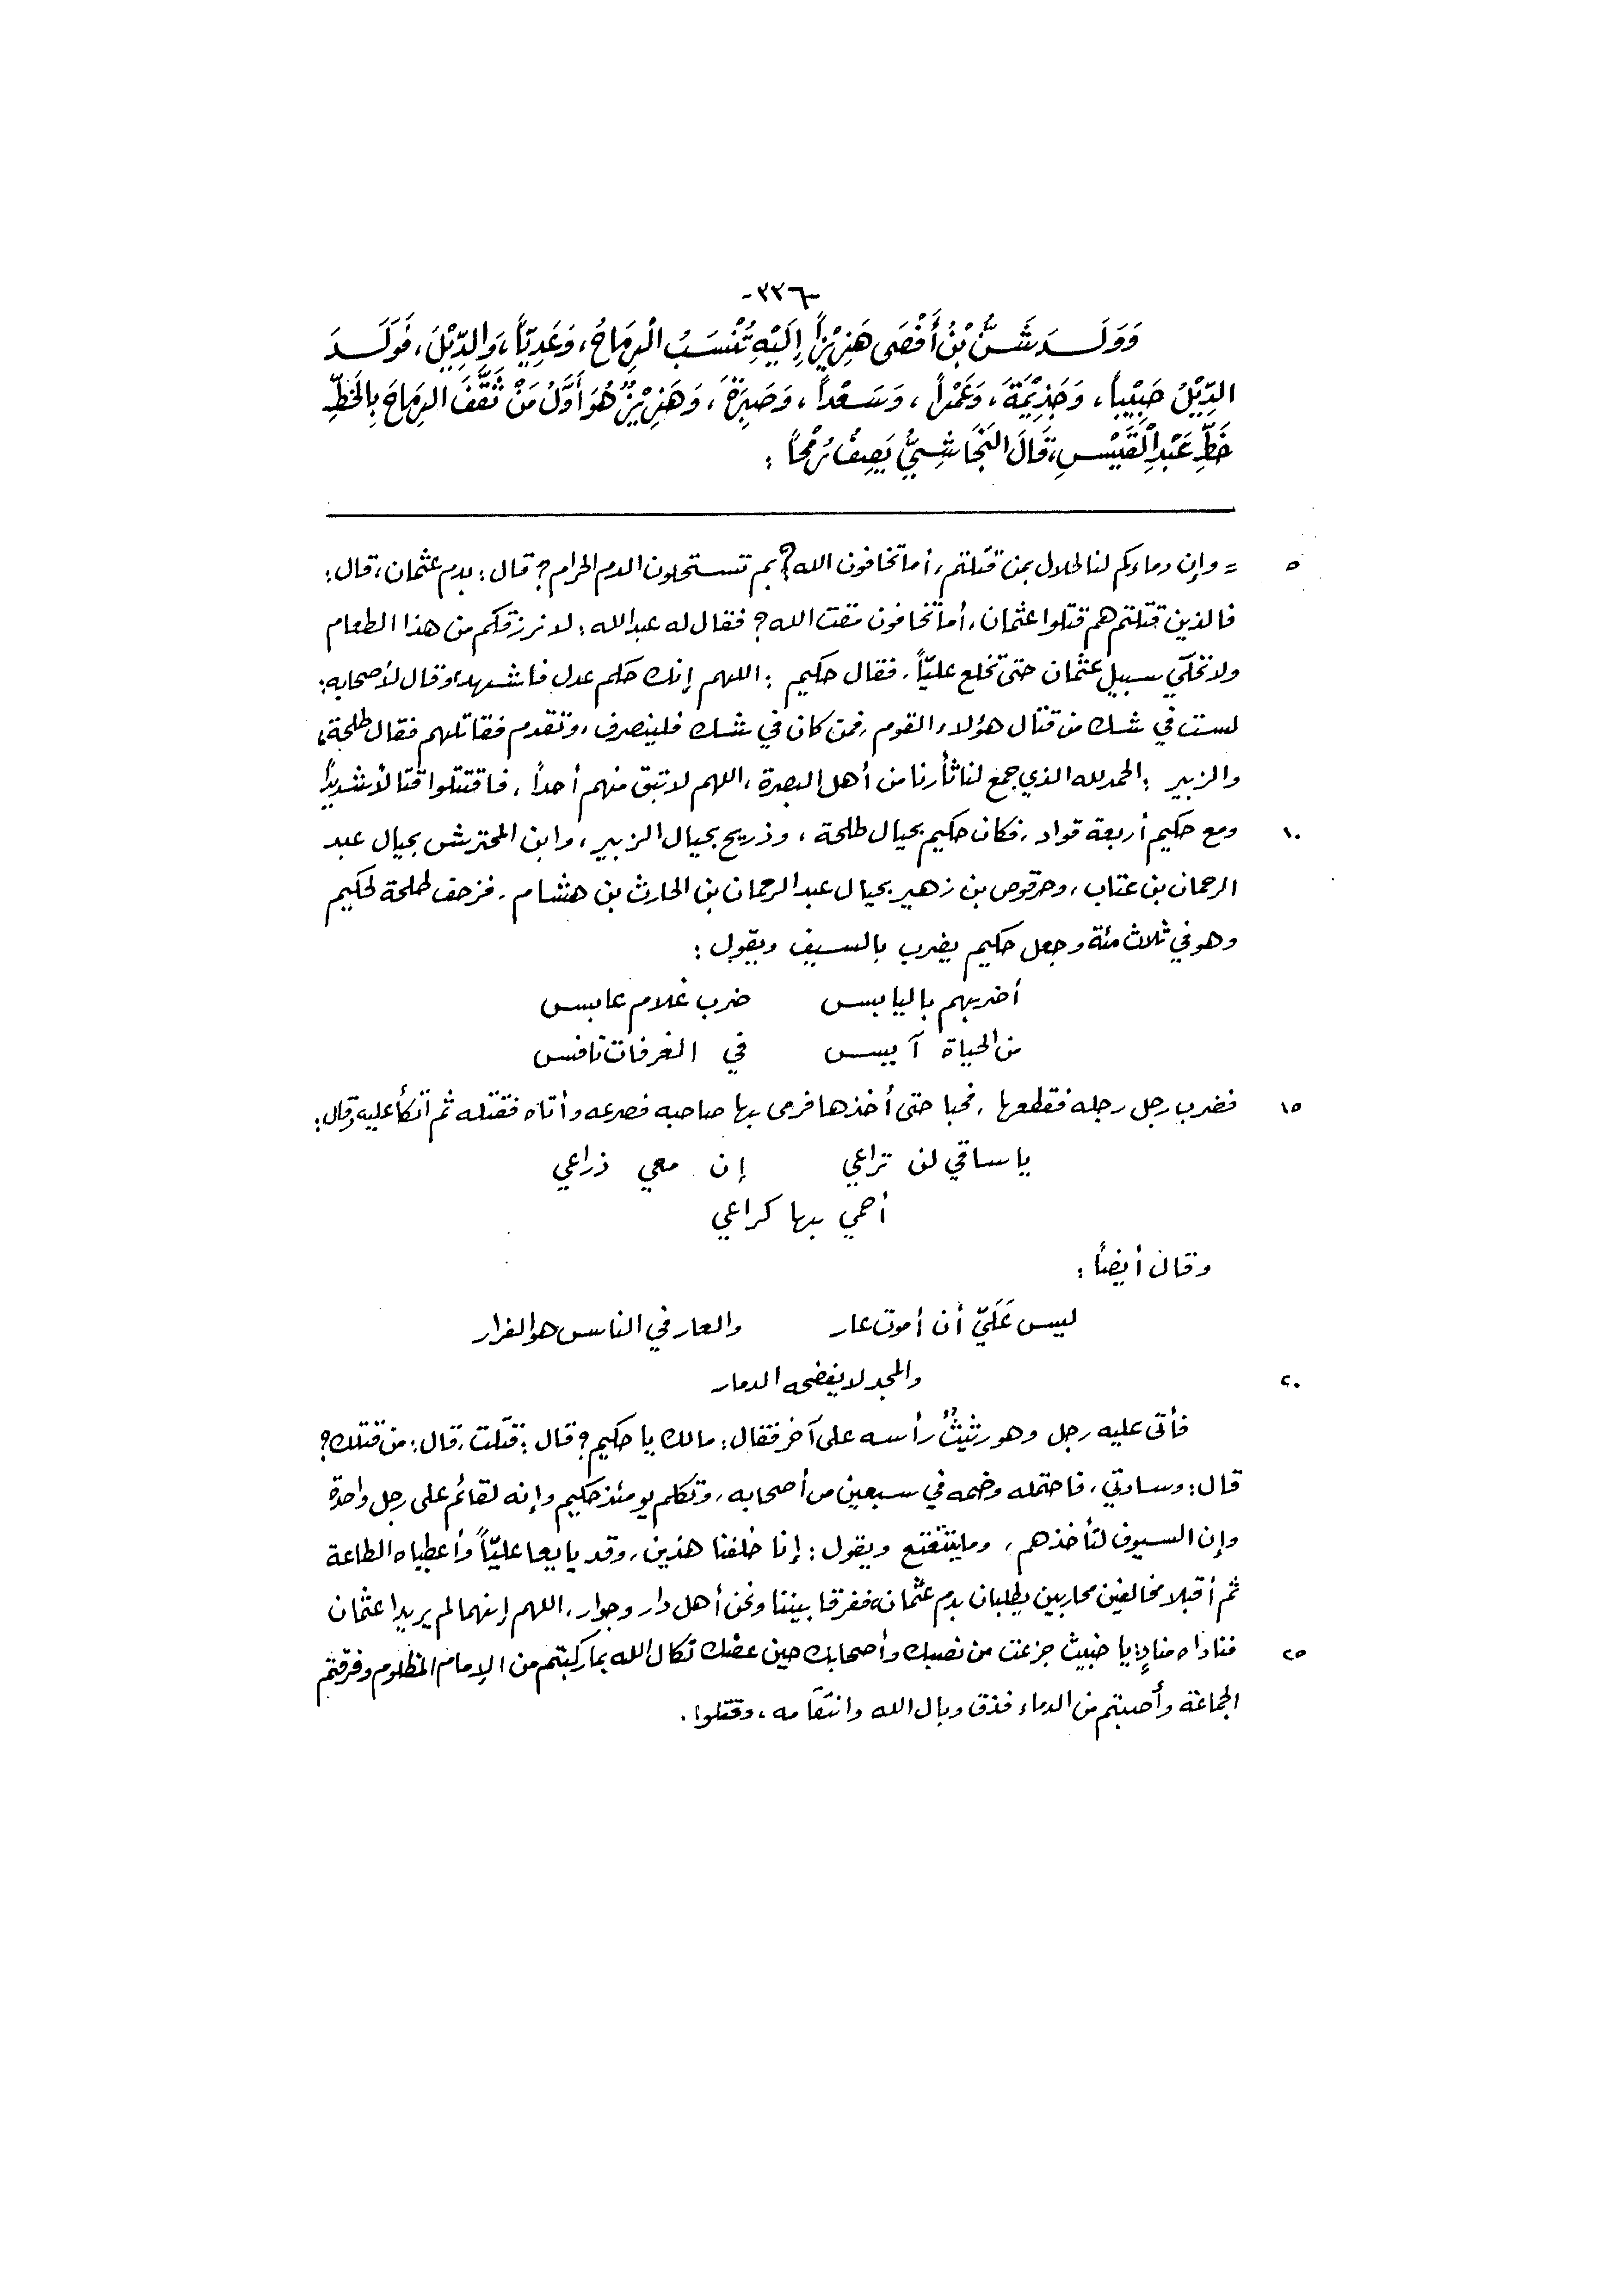 -٣٣٦-
وَوَلَـــدَ شَــنُّ بْنُ أَفْصَى هَزِيْزاً إِلَيْهِ تُنْسَبُ الرِمَاحُ، وَعَدِيّاً، وَالدِّيْلَ، فَوَلَــدَ
الدِّيْلُ حَبِيْباً، وَجَذِيْمَةَ، وَعَمْراً، وَسَعْداً، وَصَبِرَةَ، وَهَزِيْزٌ هُوَ أَوَّلُ مَنْ ثَقَّفَ الرِمَاحَ بِالخَطِّ
خَطِّ عَبْدِ القَيْسِ، قَالَ النَجَاشِيُّ يَصِفُ رُمْحاً:
٥ = وإن دماءكم لنا لحلال بمن قتلتم، أما تخافون الله؟ بم تستحلون الدم الحرام؟ قال: بدم عثمان، قال:
فالذين قتلتم هم قتلوا عثمان، أما تخافون مقت الله؟ فقال له عبد الله: لا نرزقكم من هذا الطعام
ولا نخلّي سبيل عثمان حتى تخلع عليّاً. فقال حكيم: اللهم إنك حكم عدل فاشهد، وقال لأصحابه:
لست في شك من قتال هؤلاء القوم، فمن كان في شك فلينصرف، وتقدم فقاتلهم فقال طلحة،
والزبير: الحمد لله الذي جمع لنا ثأرنا من أهل البصرة، اللهم لا تبق منهم أحداً، فاقتتلوا قتالاً شديداً
١٠ ومع حكيم أربعة قواد، فكان حكيم بحيال طلحة، وذريح بحيال الزبير، وابن المحترش بحيال عبد
الرحمان بن عتاب، وحرقوص بن زهير بحيال عبد الرحمان بن الحارث بن هشام. فزحف طلحة لحكيم
وهو في ثلاث مئة وجعل حكيم يضرب بالسيف ويقول:
أضربهم باليابس ضرب غلام عابس
من الحياة آيس في الغرفات نافس
١٥ فضرب رجل رجله فقطعها، فحبا حتى أخذها فرمى بها صاحبه فصرعه وأتاه فقتله ثم اتكأ عليه وقال:
يا ساقي لن تراعي إن معي ذراعي
أحمي بها كراعي
وقال أيضاً:
ليس عَلَيّ أن أموت عار والعار في الناس هو الفرار
٢٠ والمجد لا يفضحه الدمار
فأتى عليه رجل وهو رثيثٌ رأسه على آخر فقال: مالك يا حكيم؟ قال: قتلت، قال: من قتلك؟
قال: وسادتي، فاحتمله وضمه في سبعين من أصحابه، وتكلم يومئذ حكيم وإنه لقائم على رجل واحدة
وإن السيوف لتأخذهم، وما يتتعتع ويقول: إنا خلفنا هذين، وقد بايعا عليّاً وأعطياه الطاعة
ثم أقبلا مخالفين محاربين يطلبان بدم عثمان، ففرقا بيننا ونحن أهل دار وجوار، اللهم إنهما لم يريدا عثمان
٢٥ فناداه منادٍ: يا خبيث جزعت من نصبك وأصحابك حين عضك نكال الله بما ركبتم من الإمام المظلوم وفرقتم
الجماعة وأصبتم من الدماء فذق وبال الله وانتقامه، وقتلوا.